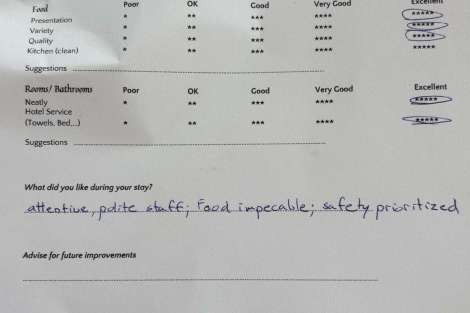 Food Poor OK Good Very Good Excellent
Presentation * ** *** **** *****
Variety * ** *** **** *****
Quality * ** *** **** *****
Kitchen (clean) * ** *** **** *****
Suggestions
Rooms/ Bathrooms Poor OK Good Very Good Excellent
Neatly * ** *** **** *****
Hotel Service
(Towels, Bed...) * ** *** **** *****
Suggestions
What did you like during your stay?
attentive, polite staff; Food impecable; safety prioritized
Advise for future improvements